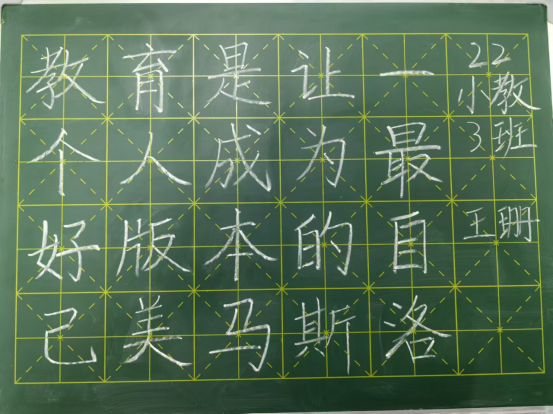 教育是让一
个人成为最
好版本的自
己美马斯洛
22
小教
3班
王珊